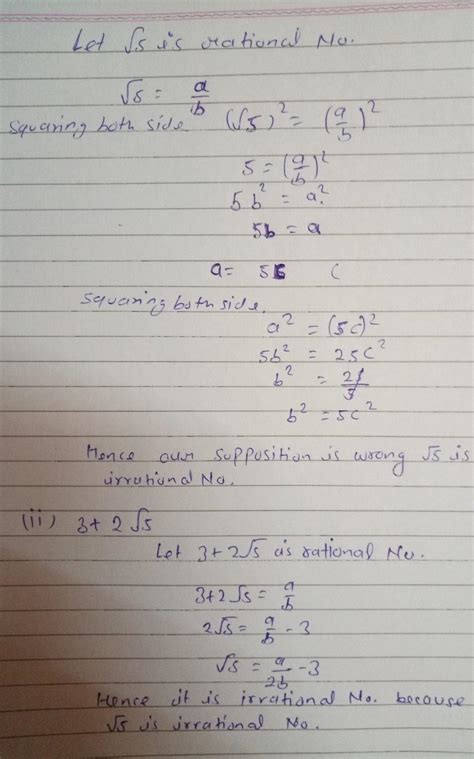 Let √5 is rational No.
√5 = a/b
Squaring both side (√5)² = (a/b)²
5 = (a/b)²
5b² = a²
5b = a
a = 5 c
Squaring both side.
a² = (5c)²
5b² = 25c²
b² = 25/5
b² = 5c²
Hence our supposition is wrong √5 is
irrational No.
(ii) 3+2√5
Let 3+2√5 is rational No.
3+2√5 = a/b
2√5 = a/b - 3
√5 = a/2b - 3
Hence it is irrational No. because
√5 is irrational No.